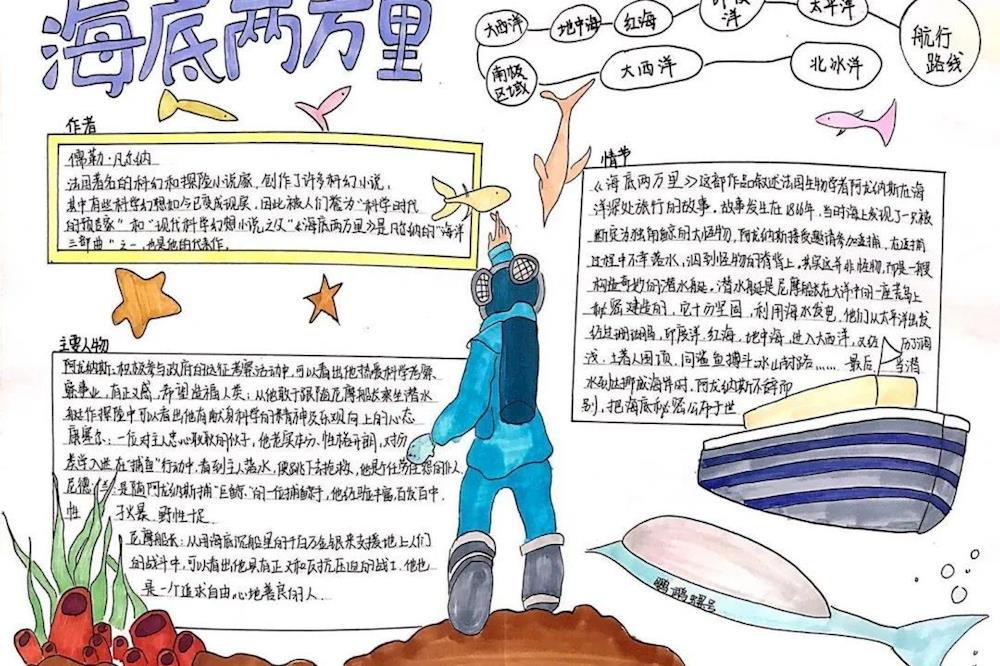 海底两万里
大西洋
地中海
红海
印度洋
太平洋
航行
路线
南极
区域
大西洋
北冰洋
作者
儒勒·凡尔纳
法国著名的科幻和探险小说家,创作了许多科幻小说,
其中有些科学幻想如今已变成现实,因此被人们誉为“科学时代
的预言家”和“现代科学幻想小说之父”《海底两万里》是凡尔纳的“海洋
三部曲”之一,也是他的代表作。
情节
《海底两万里》这部作品叙述法国生物学者阿龙纳斯在海
洋深处旅行的故事,故事发生在1866年,当时海上发现了一只被
断定为独角鲸的大怪物,阿龙纳斯接受邀请参加追捕,在追捕
过程中不幸落水,泅到怪物的脊背上。其实这并非怪物,而是一艘
构造奇妙的潜水艇。潜水艇是尼摩船长在大洋中的一座荒岛上
秘密建造的,它十分坚固,利用海水发电,他们从太平洋出发
经过珊瑚岛,印度洋,红海,地中海,进入大西洋,
浅,土著人围攻,同鲨鱼搏斗,冰山封路……最后,当潜
水到达挪威海岸时,阿龙纳斯不辞而
别,把海底秘密公布于世
主要人物
阿龙纳斯:积极参与政府的远征考察活动中,可以看出他热爱科学考察
事业,有正义感,希望造福人类;从他敢于跟随尼摩船长乘坐潜水
艇作探险中可以看出他有献身科学的精神及乐观向上的心态
康塞尔:一位对主人忠心耿耿的伙子,他老实本分,性格开朗,对
在“捕鱼”行动中,看到主人落水,便跳下去抢救,他是任劳任怨的仆人
尼德 是随阿龙纳斯捕“巨鲸”的一位捕鲸手,他经验丰富,百发百中,
性 火暴,野性十足
尼摩船长:从用海底沉船里的千百万金银来支援地上人们
的战斗中,可以看出他具有正义和反抗压迫的战士,他也
是一个追求自由,心地善良的人.
鹦鹉螺号